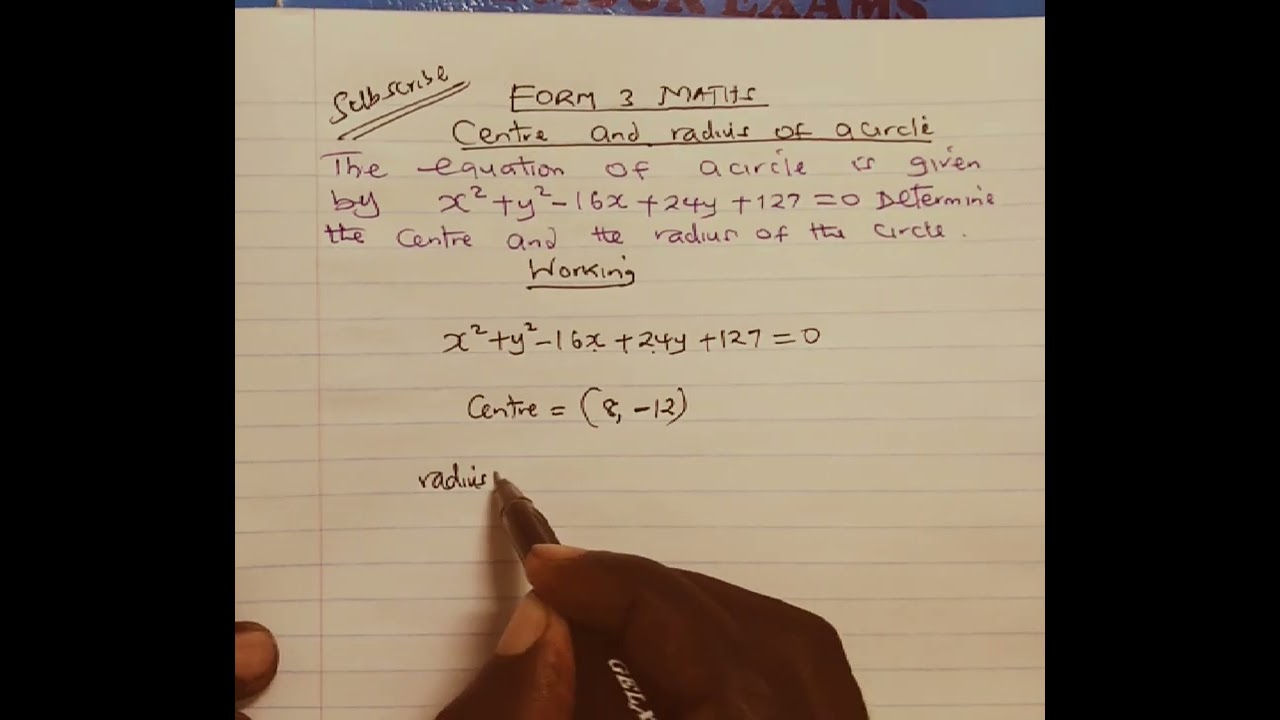 MOCK EXAMS
Subscribe
FORM 3 MATHS
Centre and radius of a circle
The equation of a circle is given
by x²+y²-16x+24y+127=0 Determine
the centre and the radius of the circle.
Working
x²+y²-16x+24y+127=0
Centre = (8, -12)
radius
GELX